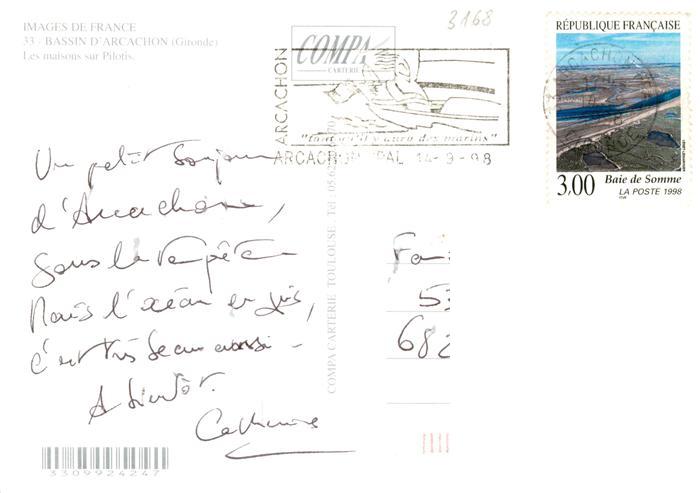 IMAGES DE FRANCE
33 - BASSIN D'ARCACHON (Gironde)
Les maisons sur Pilotis.
3168
COMPA
CARTERIE
ARCACHON
ARCACHON PAL 14-9-98
RÉPUBLIQUE FRANÇAISE
3,00
Baie de Somme
LA POSTE 1998
Un petit bonjour
d'Arcachon,
sous la tempête
Mais l'océan en gris,
c'est très beau aussi -
A bientôt.
Catherine
COMPA CARTERIE TOULOUSE
Fa
53
682
3309924247